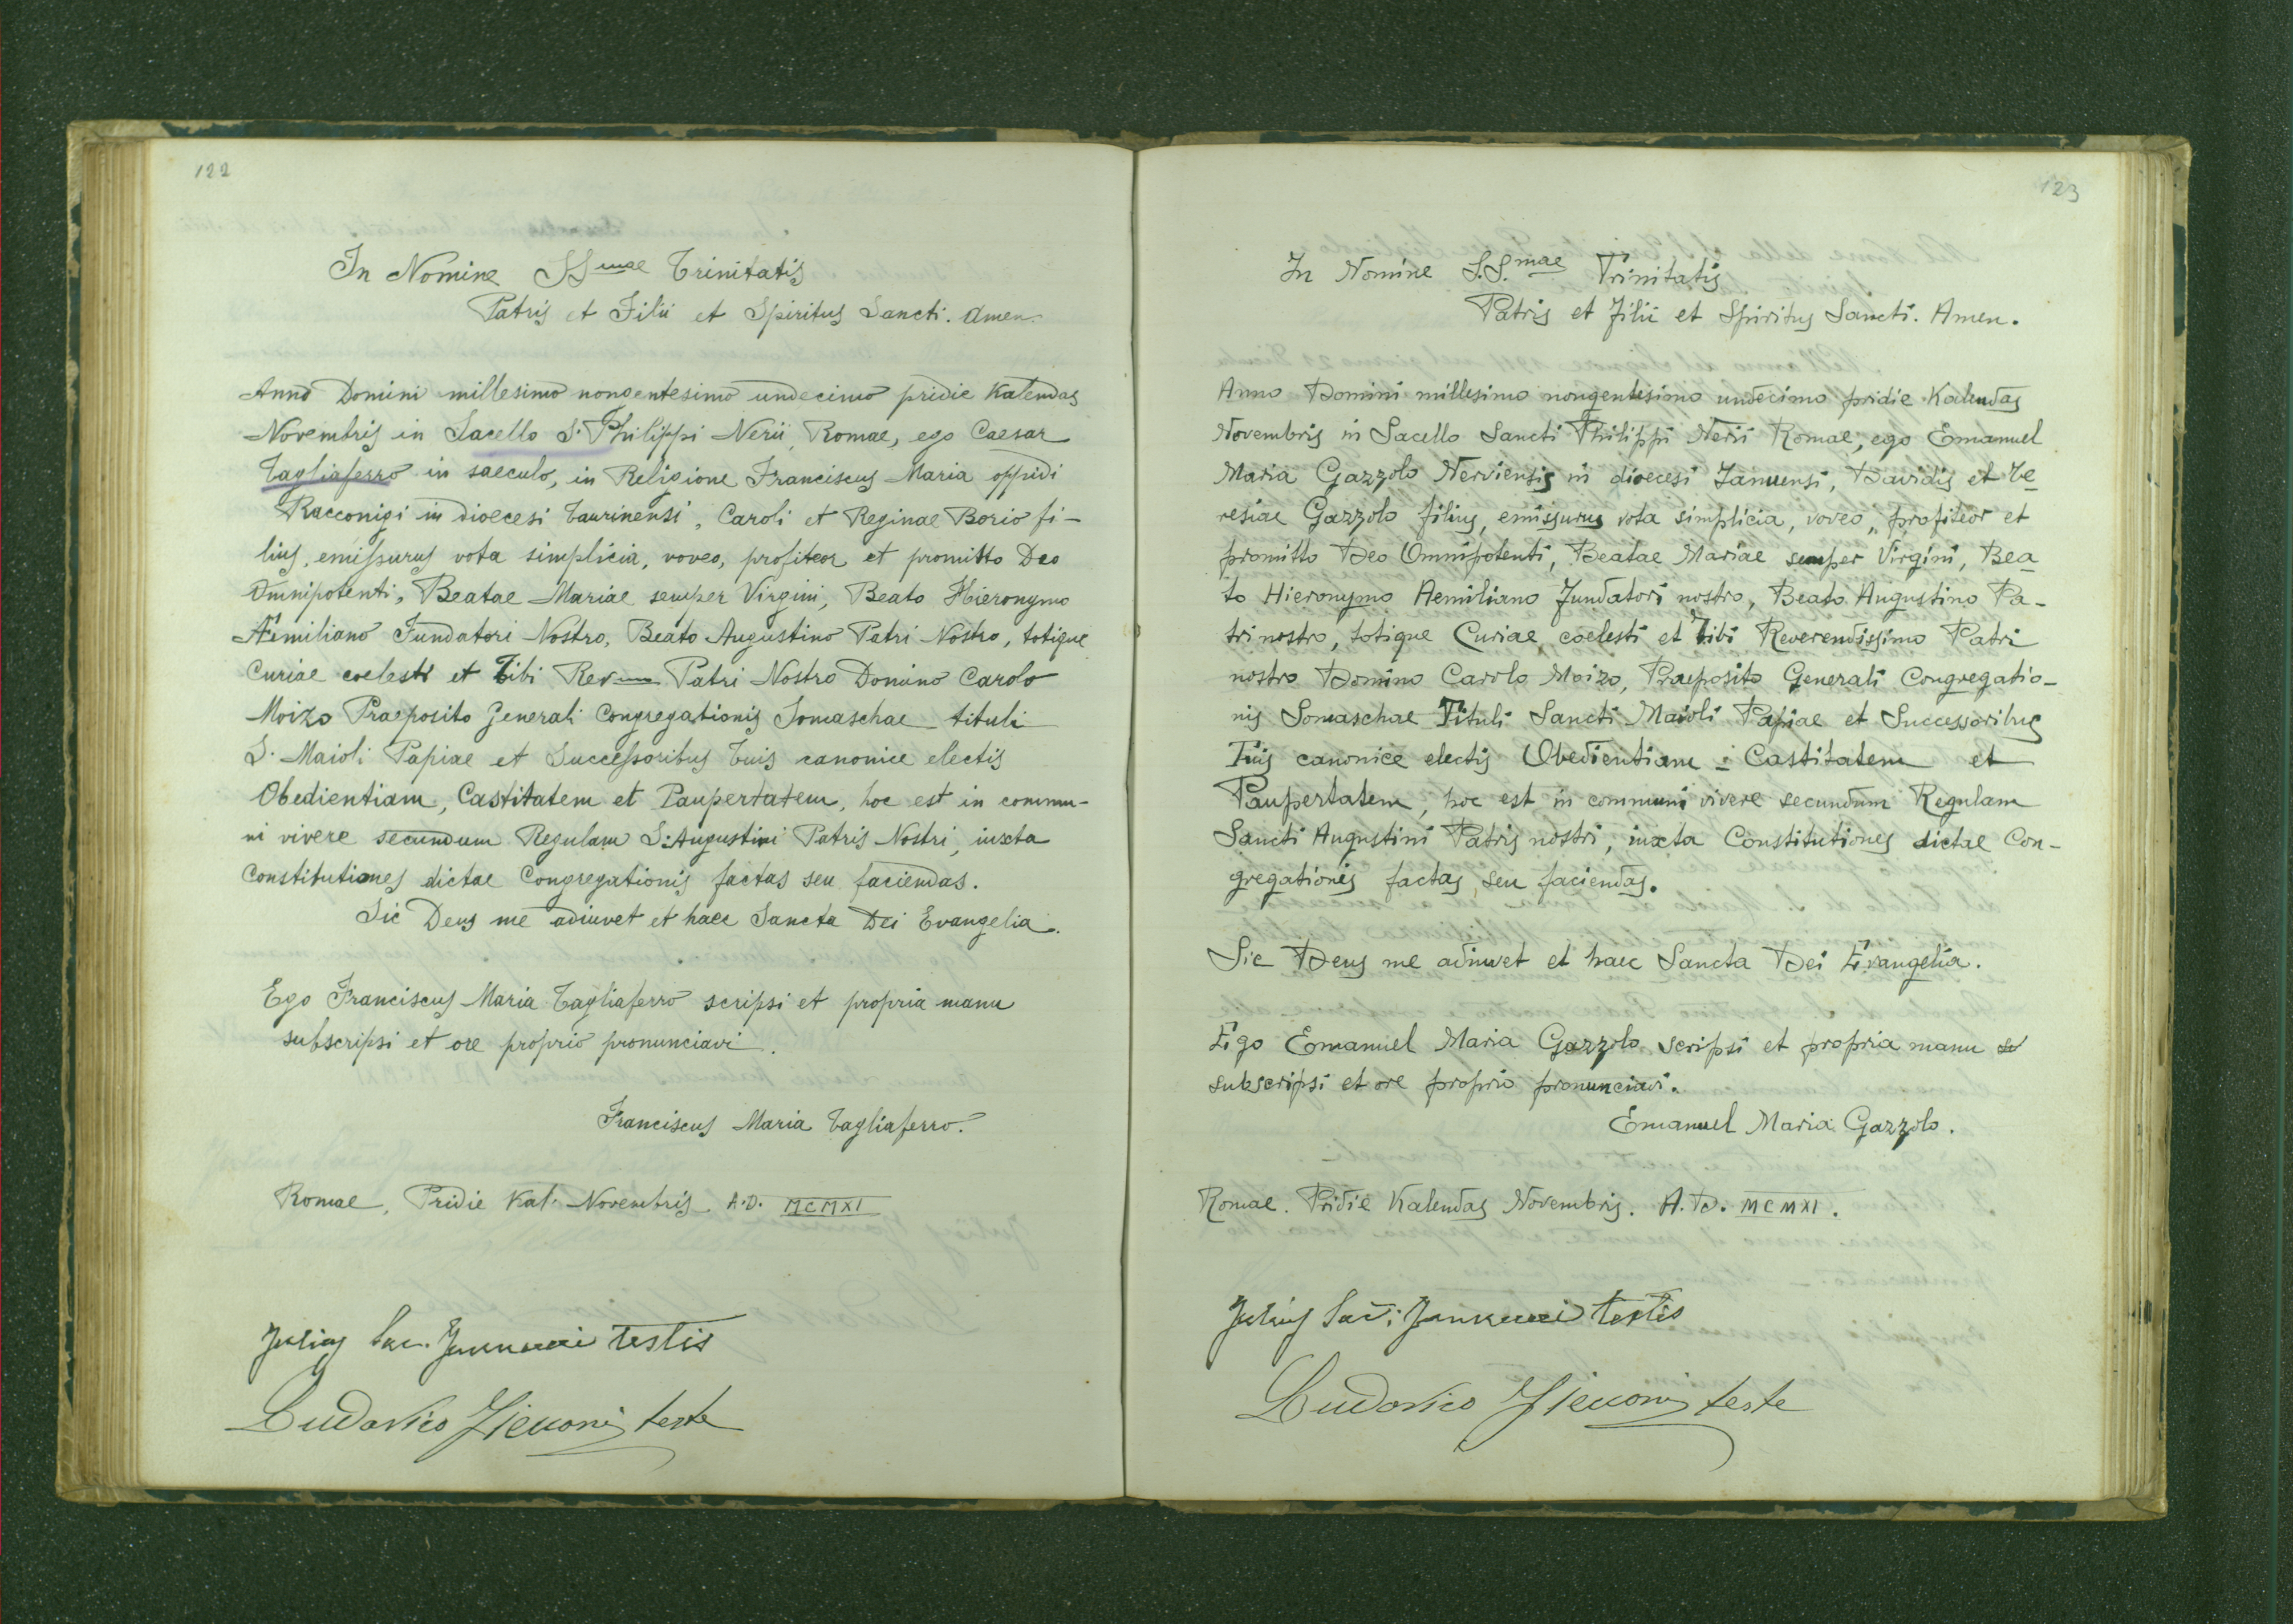 122
In Nomine SSmae Trinitatis
Patris et Filii et Spiritus Sancti. Amen.
Anno Domini millesimo nongentesimo undecimo pridie Kalendas
Novembris in Sacello S. Philippi Nerii, Romae, ego Caesar
Tagliaferro in saeculo, in Religione Franciscus Maria oppidi
Racconigi in dioecesi Taurinensi, Caroli et Reginae Borio fi-
lius, emissurus vota simplicia, voveo, profiteor et promitto Deo
Omnipotenti, Beatae Mariae semper Virgini, Beato Hieronymo
Aemiliano Fundatori Nostro, Beato Augustino Patri Nostro, totique
Curiae coelesti et Tibi Rev Patri Nostro Domino Carolo
Moizo Praeposito Generali Congregationis Somaschae tituli
S. Maioli Papiae et Successoribus Tuis canonice electis
Obedientiam, Castitatem et Paupertatem, hoc est in commu-
ni vivere secundum Regulam S. Augustini Patris Nostri, iuxta
Constitutiones dictae Congregationis factas seu faciendas.
Sic Deus me adiuvet et haec Sancta Dei Evangelia.
Ego Franciscus Maria Tagliaferro scripsi et propria manu
subscripsi et ore proprio pronunciavi.
Franciscus Maria Tagliaferro.
Romae, Pridie Kal. Novembris A.D. MCMXI
Julius Sac. testis
Ludovico teste
123
In Nomine S.S.mae Trinitatis
Patris et Filii et Spiritus Sancti. Amen.
Anno Domini millesimo nongentesimo undecimo pridie Kalendas
Novembris in Sacello Sancti Philippi Nerii Romae, ego Emanuel
Maria Gazzolo Nerviensis in dioecesi Januensi, Davidis et Te
resiae Gazzolo filius, emissurus vota simplicia, voveo, profiteor et
promitto Deo Omnipotenti, Beatae Mariae semper Virgini, Bea
to Hieronymo Aemiliano Fundatori nostro, Beato Augustino Pa-
tri nostro, totique Curiae coelesti et Tibi Reverendissimo Patri
nostro Domino Carolo Moizo, Praeposito Generali Congregatio-
nis Somaschae Tituli Sancti Maioli Papiae et Successoribus
Tuis canonice electis Obedientiam - Castitatem et
Paupertatem, hoc est in communi vivere secundum Regulam
Sancti Augustini Patris nostri, iuxta Constitutiones dictae Con-
gregationis factas seu faciendas.
Sic Deus me adiuvet et haec Sancta Dei Evangelia.
Ego Emanuel Maria Gazzolo scripsi et propria manu
subscripsi et ore proprio pronunciavi.
Emanuel Maria Gazzolo.
Romae. Pridie Kalendas Novembris. A.D. MCMXI.
Julius Sac. testis
Ludovico teste